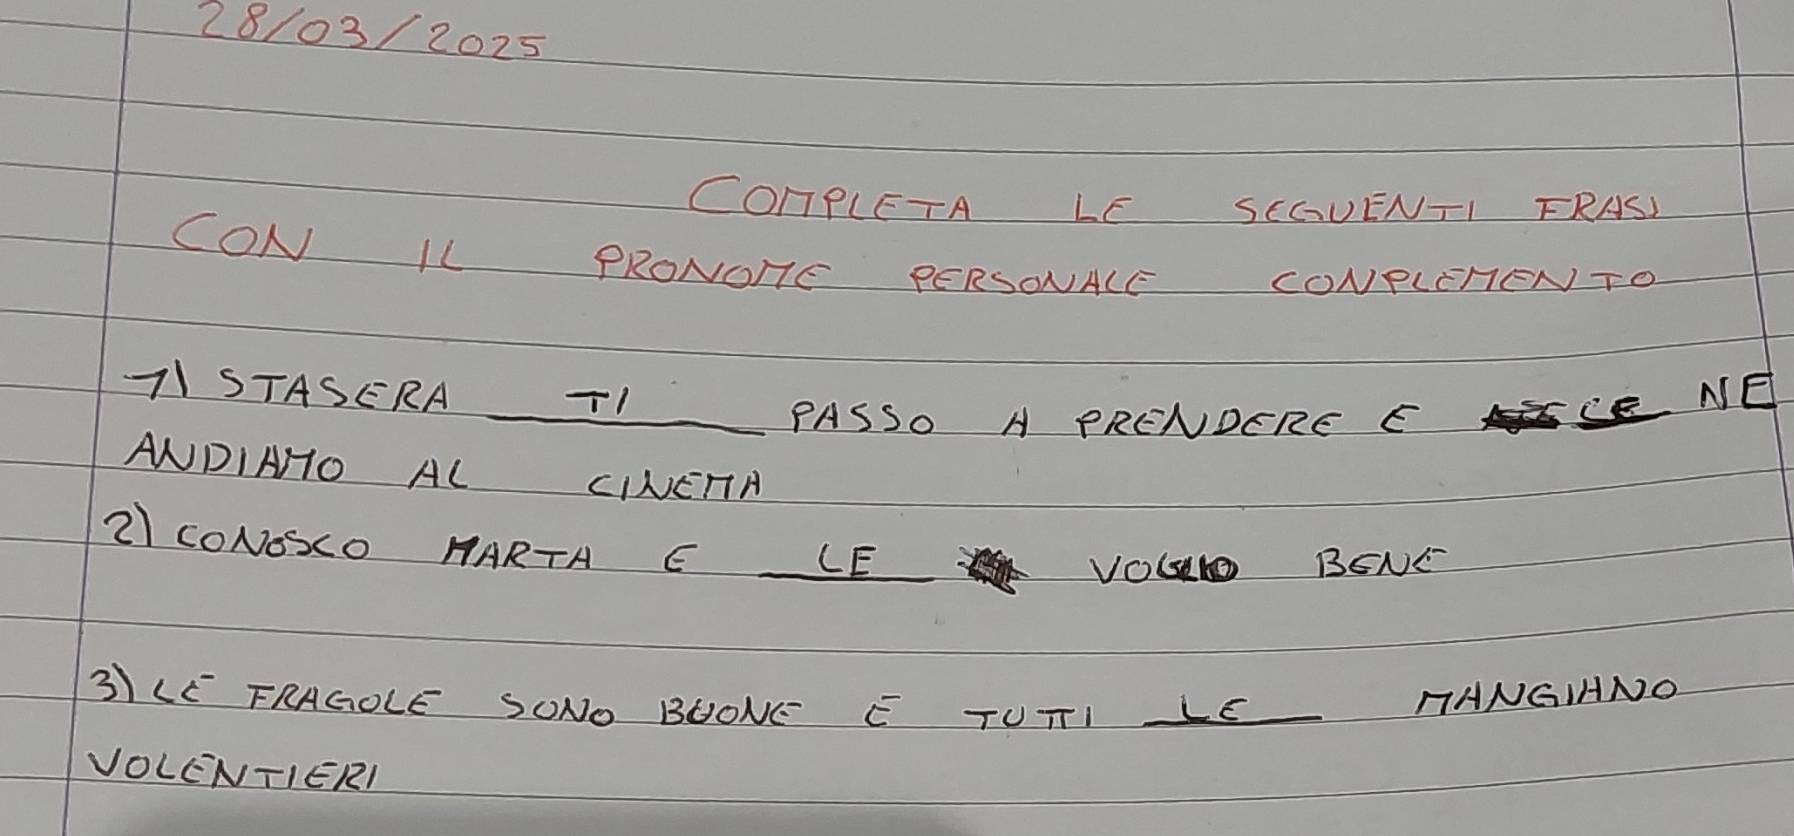 28/03/2025
COMPLETA LE SEGUENTI FRASI
CON IL PRONOME PERSONALE CONPLEMENTO
1) STASERA TI PASSO A PRENDERE E CE NE
ANDIAMO AL CINEMA
2) CONOSCO MARTA E LE VOGLIO BENE
3) LE FRAGOLE SONO BUONE E TUTTI LE MANGIANO
VOLENTIERI